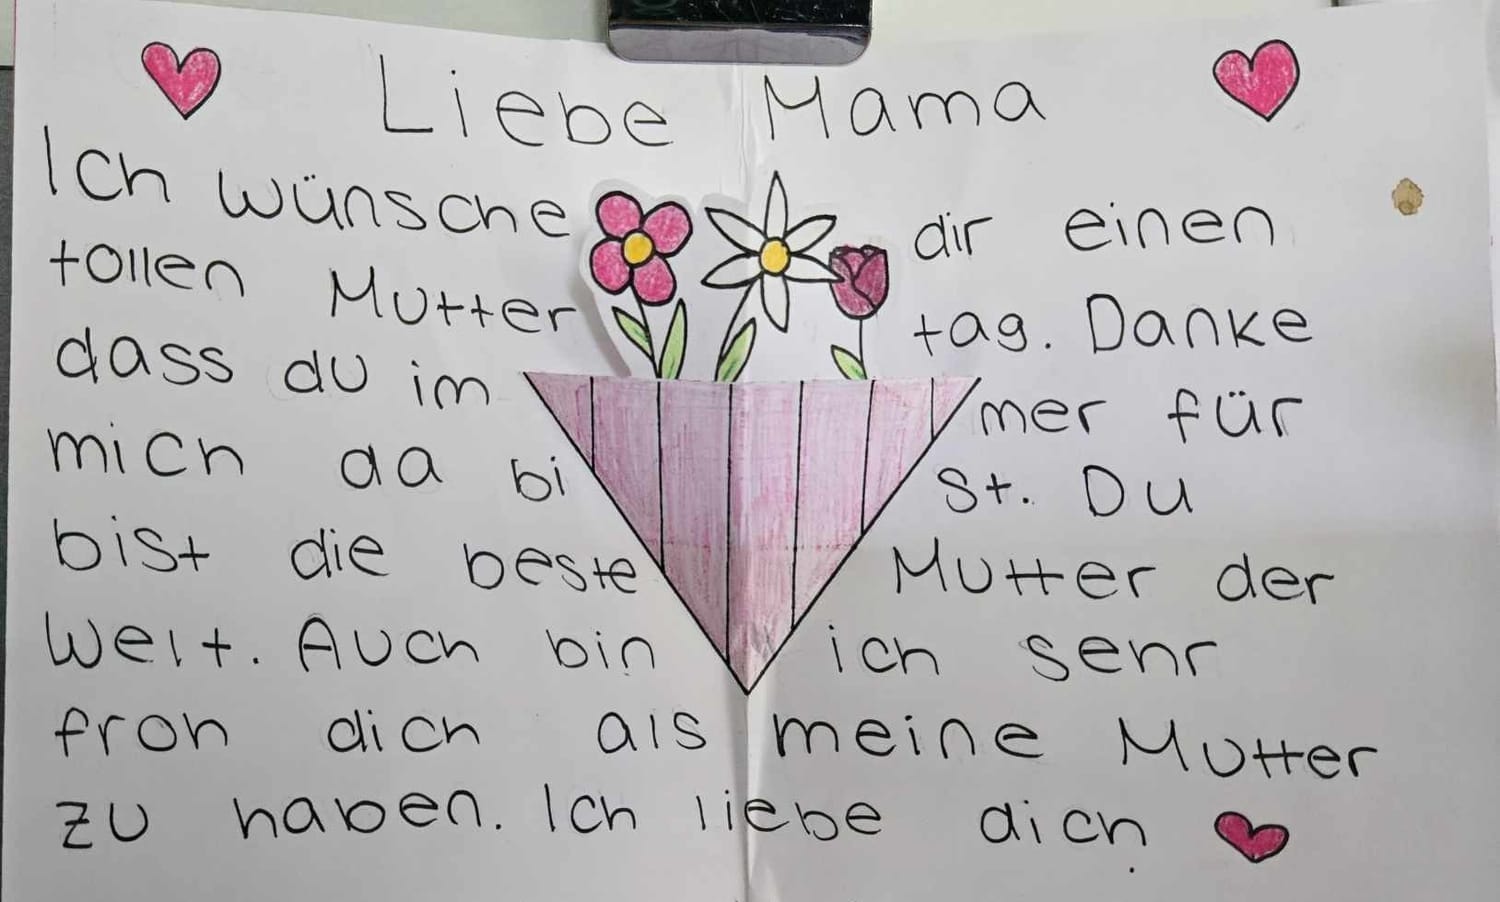 Liebe Mama
Ich wünsche dir einen
tollen Mutter tag. Danke
dass du im mer für
mich da bi st. Du
bist die beste Mutter der
Welt. Auch bin ich sehr
froh dich als meine Mutter
zu haben. Ich liebe dich.